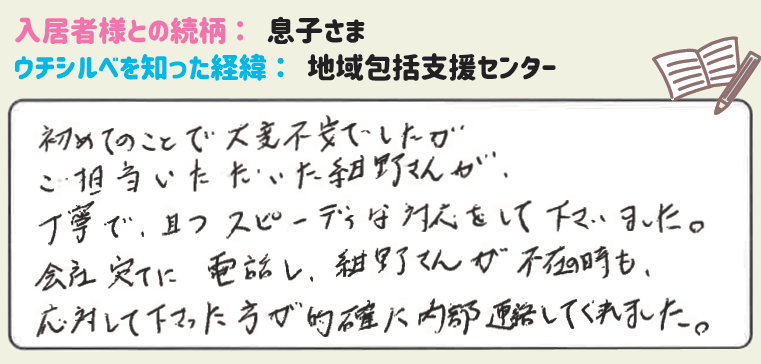 入居者様との続柄： 息子さま
ウチシルベを知った経緯： 地域包括支援センター
初めてのことで大変不安でしたが
ご担当いただいた紺野さんが、
丁寧で、且つスピーディな対応をして下さいました。
会社宛てに電話し、紺野さんが不在の時も、
応対して下さった方が的確に内部連絡してくれました。